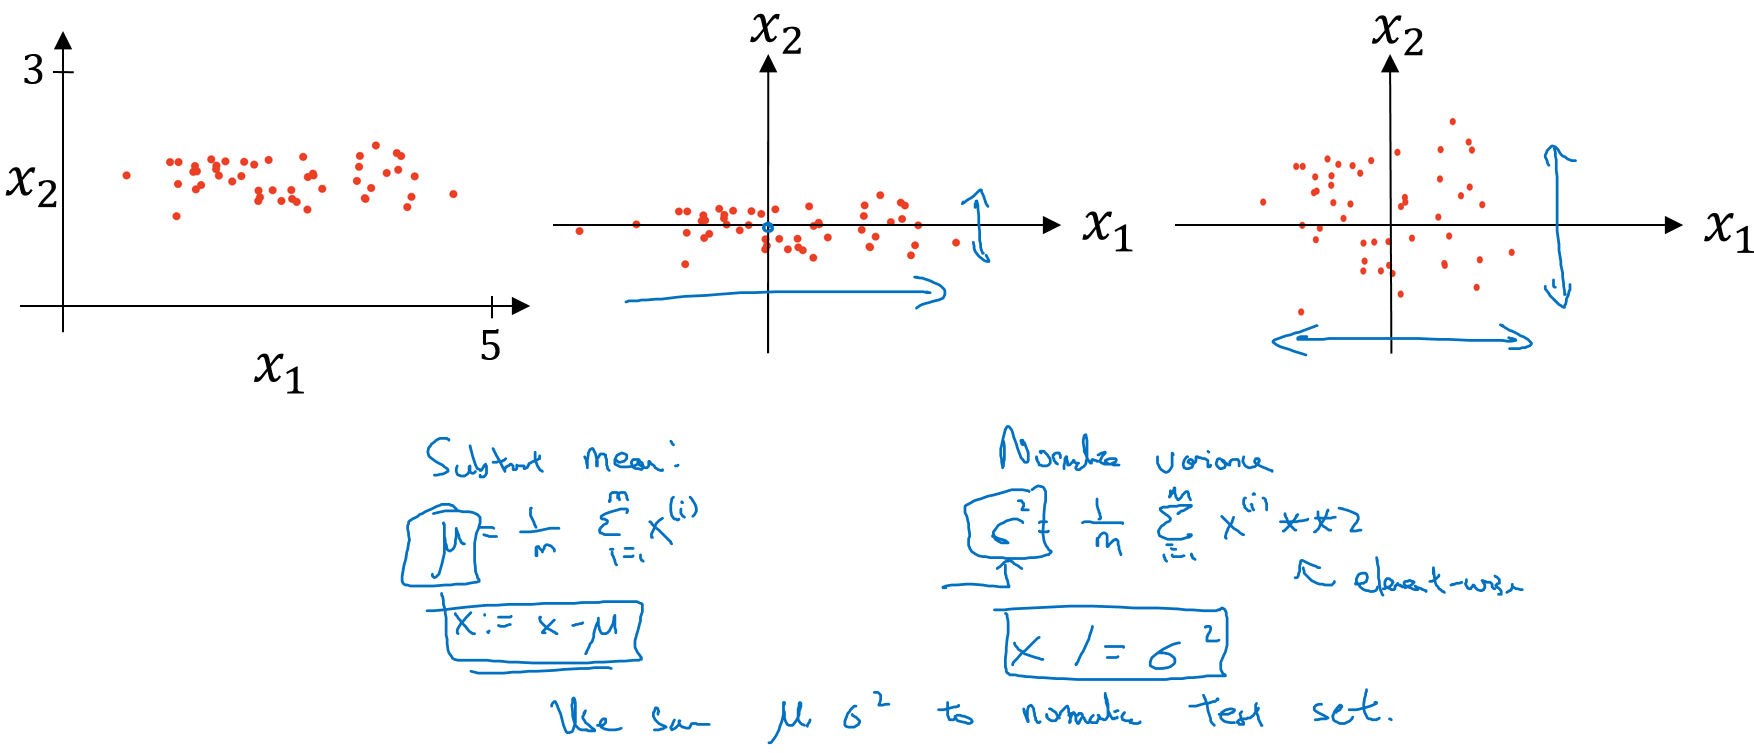 x₂
3
x₁
5
x₂
x₁
x₂
x₁
Subtract mean:
μ = 1/m ∑_{i=1}^{m} x^{(i)}
x := x - μ
Normalize variance
σ² = 1/m ∑_{i=1}^{m} x^{(i)} ** 2
element-wise
x /= σ²
Use same μ, σ² to normalize test set.